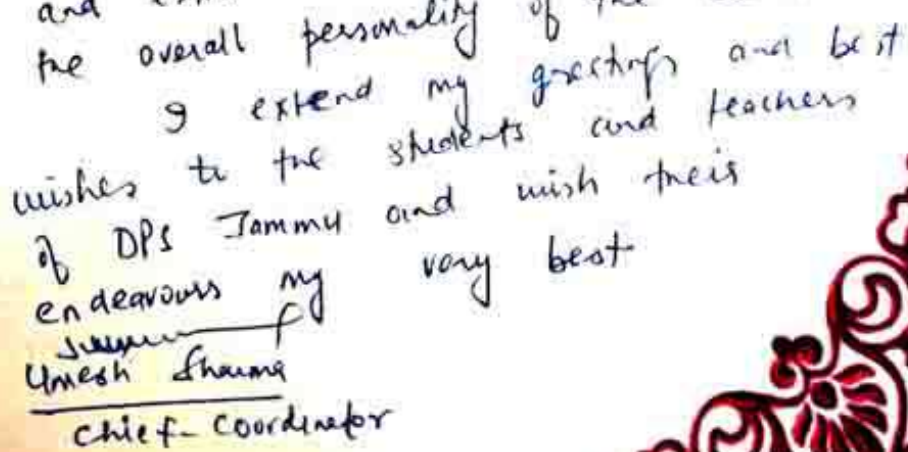 and
the overall personality of the
I extend my greetings and best
wishes to the students and teachers
of DPS Jammu and wish their
endeavours my very best
Umesh Sharma
Chief-Coordinator